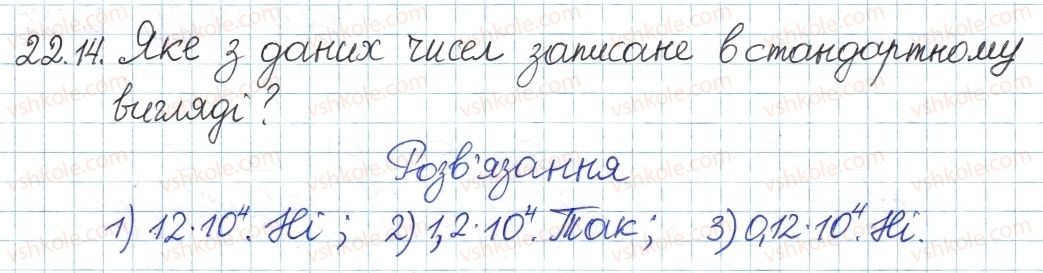 22.14. Яке з даних чисел записане в стандартному
вигляді?
Розв'язання
1) 12·10⁴. Ні; 2) 1,2·10⁴. Так; 3) 0,12·10⁴. Ні.